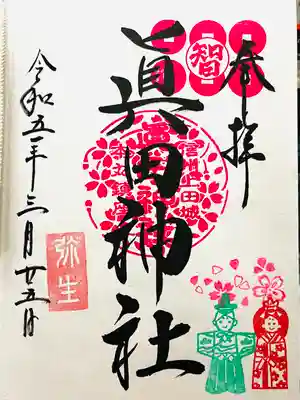 奉拝
智
眞田神社
信州上田城
本丸鎮座
令和五年三月廿五日
弥生